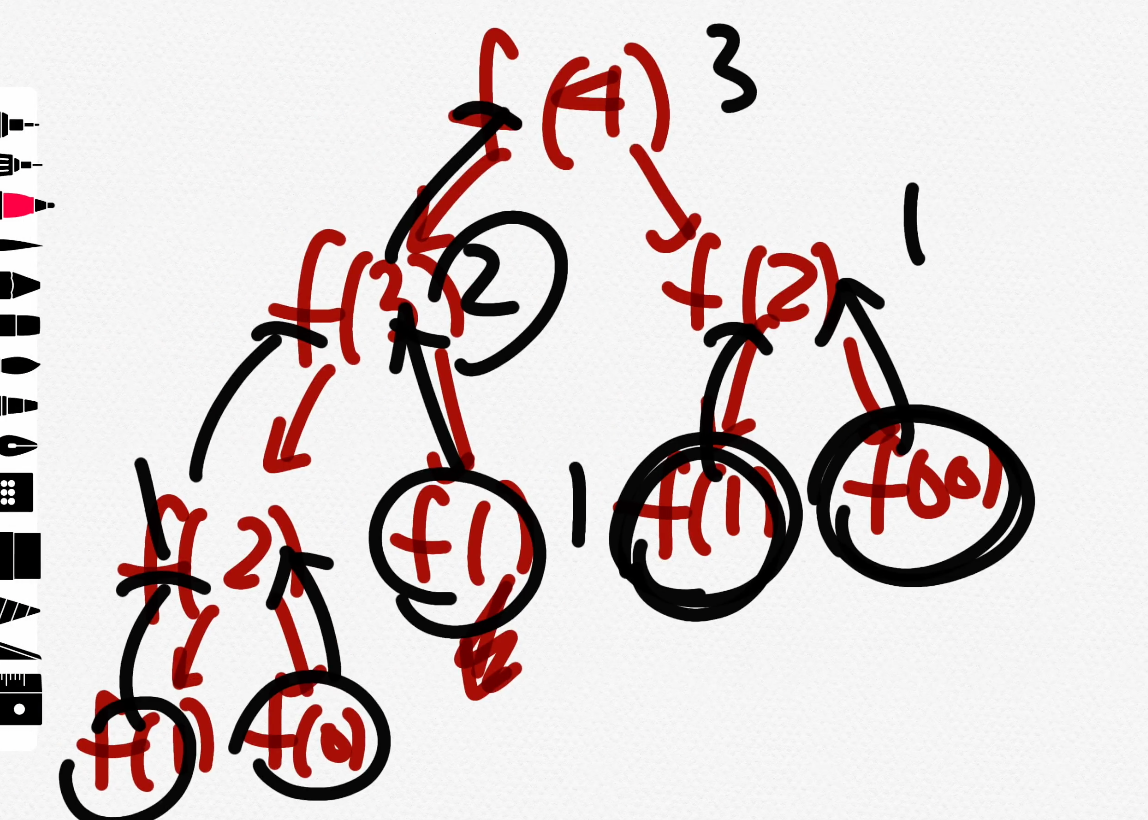 f(4) 3
f(3) 2 f(2) 1
1 f(2) f(1) 1 f(1) f(0)
f(1) f(0)